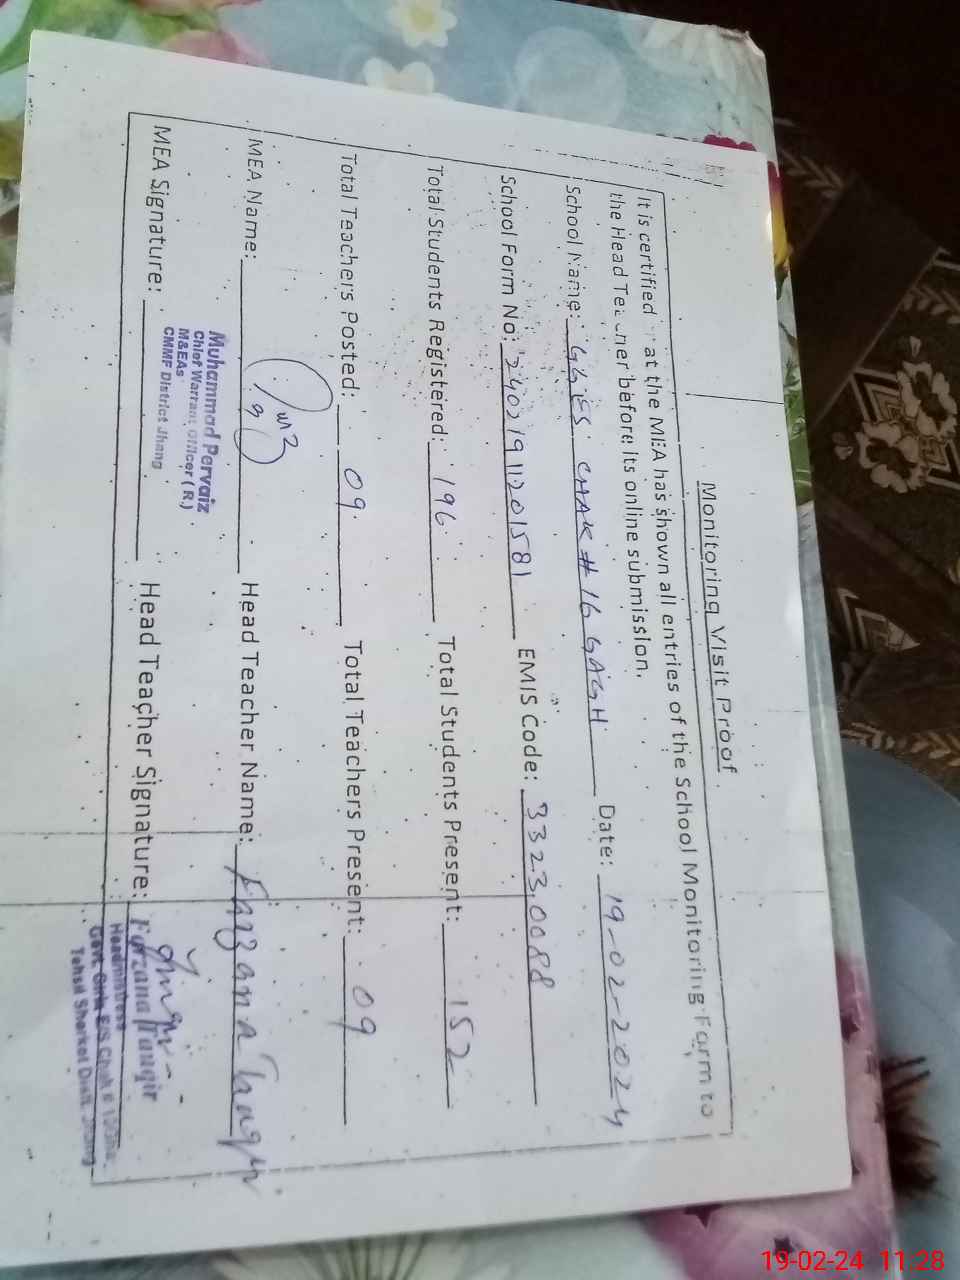 Monitoring Visit Proof
It is certified at the MEA has shown all entries of the School Monitoring Form to
the Head Teacher before its online submission.
School Name: GGES CHAK # 16 GAGH Date: 19-02-2024
School Form No: 24021911201581 EMIS Code: 33230088
Total Students Registered: 196 Total Students Present: 152
Total Teachers Posted: 09 Total Teachers Present: 09
MEA Name: Head Teacher Name: Farzana
Muhammad Pervaiz
Chief Warrant Officer (R.)
M&EAs
CMMF District Jhang
MEA Signature: Head Teacher Signature:
Farzana Tauqir
Headmistress
Govt. Girls E/S Chak #
Tehsil Shorkot Distt. Jhang
19-02-24 11:28